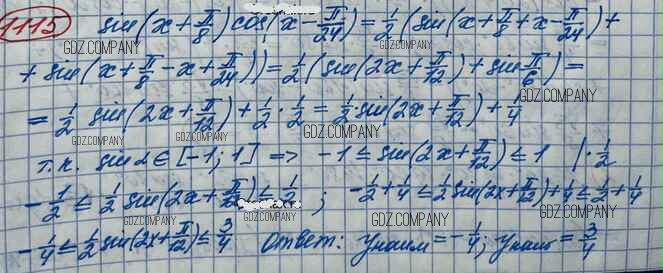 1115 sin(x+π/8)cos(x-π/24)=1/2(sin(x+π/8+x-π/24)+
GDZ.COMPANY GDZ.COMPANY GDZ.COMPANY
+sin(x+π/8-x+π/24))=1/2(sin(2x+π/12)+sin π/6)=
GDZ.COMPANY
=1/2 sin(2x+π/12)+1/2·1/2=1/2·sin(2x+π/12)+1/4
GDZ.COMPANY GDZ.COMPANY GDZ.COMPANY
т.к. sin α∈[-1;1] => -1≤sin(2x+π/12)≤1 |·1/2
-1/2≤1/2 sin(2x+π/12)≤1/2; -1/2+1/4≤1/2 sin(2x+π/12)+1/4≤1/2+1/4
GDZ.COMPANY GDZ.COMPANY GDZ.COMPANY
-1/4≤1/2 sin(2x+π/12)≤3/4 Ответ: yнаим=-1/4; yнаиб=3/4
GDZ.COMPANY GDZ.COMPANY